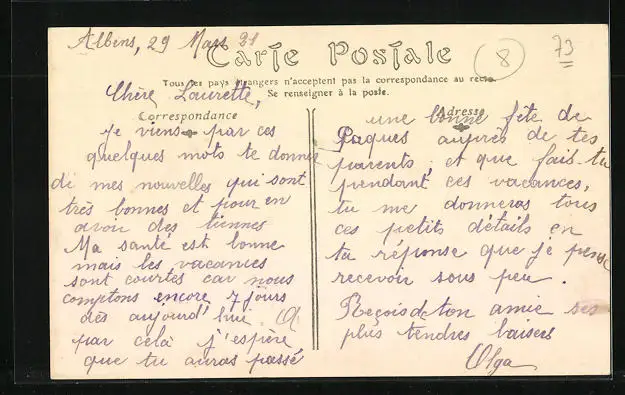 Albens, 29 Mars 21
Carte Postale
8
73
Tous les pays étrangers n'acceptent pas la correspondance au recto
Se renseigner à la poste.
Chère Laurette,
Correspondance
je viens par ces
quelques mots te donner
de mes nouvelles qui sont
très bonnes et pour en
avoir des tiennes
Ma santé est bonne
mais les vacances
sont courtes car nous
comptons encore 7 jours
dès aujourd'hui.
par celà j'espère
que tu auras passé
Adresse
une bonne fête de
Paques auprès de tes
parents, et que fais-tu
pendant ces vacances,
tu me donneras tous
ces petits détails en
ta réponse que je pense
recevoir sous peu.
Reçois de ton amie ses
plus tendres baisers
Olga